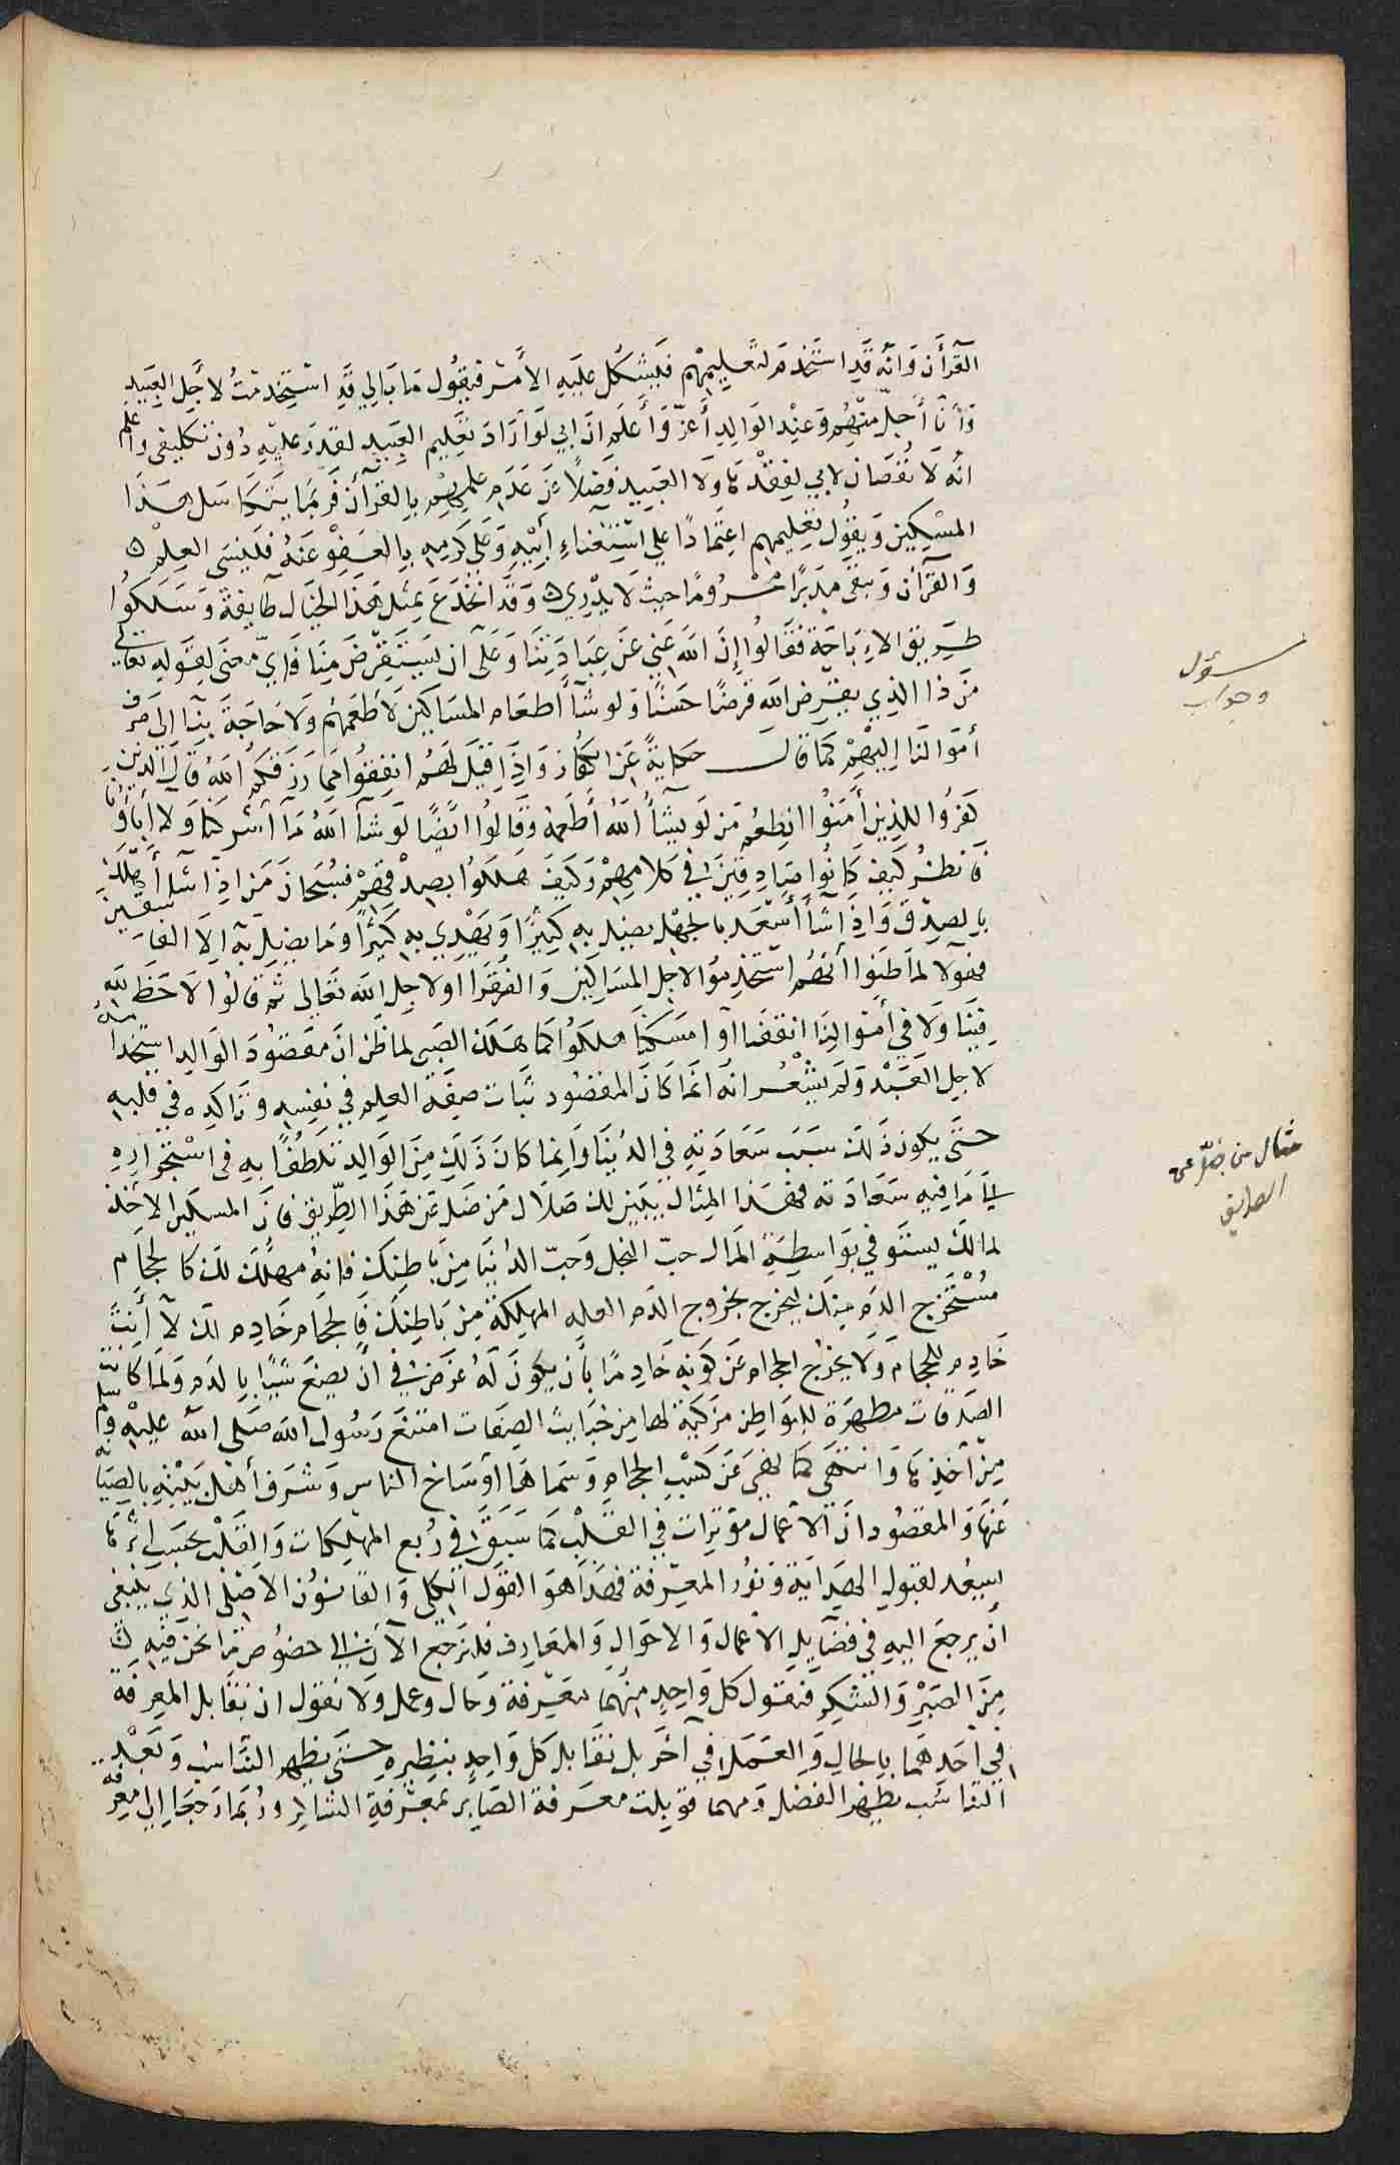 القرآن وانه قد استخدم لتعليمهم فيشكل عليه الأمر فيقول ما بالي قد استخدمت لاجل العبيد
وأنا أجل منهم وعند الوالد أعز وأعلم ان ابي لو اراد تعليم العبيد لقدر عليه دون تكليفي واعلم
انه لا نقصان لابي بفقد هاولا العبيد فضلا عن عدم علمهم بالقرآن فربما يتكاسل هذا
المسكين ويقول تعليمهم اعتمادا علي استغناء أبيه وعلي كرمه بالعفو عنه فلينسى العلم
والقرآن وبقى مدبرا محروما حيث لا يدري وقد انخدع بمثل هذا الخيال طايفة وسلكوا
طريق الاباحة فقالوا إن الله غني عن عبادتنا وعلى ان يستقرض منا فاي معنى لقوله تعالى
من ذا الذي يقرض الله قرضا حسنا ولو شآ أطعام المساكين لاطعمهم ولا حاجة بنا الى صرف
أموالنا اليهم كما قال حكاية عن الكفار واذا قيل لهم انفقوا مما رزقكم الله قال الذين
كفروا للذين أمنوا انطعم من لو يشأ الله أطعمه وقالوا ايضا لو شآ الله مآ اشركنا ولا أباؤنا
فانظر كيف كانوا صادقين في كلامهم وكيف هلكوا بصدقهم فسبحان من اذا شآ أهلك
بالصدق واذا شآ أسعد بالجهل يضل به كثيرا ويهدي به كثيرا وما يضل به الا الفاسقين
فهولا لما ظنوا أنهم استخدموا لاجل المساكين والفقرا او لاجل الله تعالى ثم قالوا لا حظ لله
فينا ولا في أموالنا انفقنا او امسكنا هلكوا كما هلك الصبي لما ظن ان مقصود الوالد استخدامه
لاجل العبد ولم يشعر انه انما كان المقصود ثبات صفة العلم في نفسه وتاكده في قلبه
حتى يكون ذلك سبب سعادته في الدنيا وانما كان ذلك من الوالد تلطفا به في استجراره
الي ما فيه سعادته فهذا المثال يبين لك ضلال من ضل عن هذا الطريق فان المسكين الاخذ
لمالك يستوفي بواسطة المال حب البخل وحب الدنيا من باطنك فانه مهلك لك كالحجام
مستخرج الدم منك ليخرج بخروج الدم العله المهلكة من باطنك فالحجام خادم لك لا أنت
خادم للحجام ولا يخرج الحجام عن كونه خادما بأن يكون له غرض في ان يصنع شيا بالدم ولما كانت
الصدقات مطهرة للبواطن مزكية لها من خبايث الصفات امتنع رسول الله صلى الله عليه وسلم
من أخذها وانتهى كما نهى عن كسب الحجام وسماها اوساخ الناس وشرف أهل بيته بالصيانه
عنها والمقصود ان الاعمال مؤثرات في القلب كما سبق في ربع المهلكات والقلب بحسب اثرها
يستعد لقبول الهداية ونور المعرفة فهذا هو القول الكلي والقانون الاصلي الذي ينبغي
أن يرجع اليه في فضايل الاعمال والاحوال والمعارف فلنرجع الآن الي خصوص ما نحن فيه
من الصبر والشكر فنقول كل واحد منهما معرفة وحال وعمل ولا نقول ان نقابل المعرفة
في احدهما بالحال والعمل في آخر بل نقابل كل واحد بنظيره حتى يظهر التناسب وبعد
التناسب يظهر الفضل ومهما قوبلت معرفة الصابر بمعرفة الشاكر وربما رجعا الى معرفة
سؤل
وجواب
مثال من ضل عن
الطريق